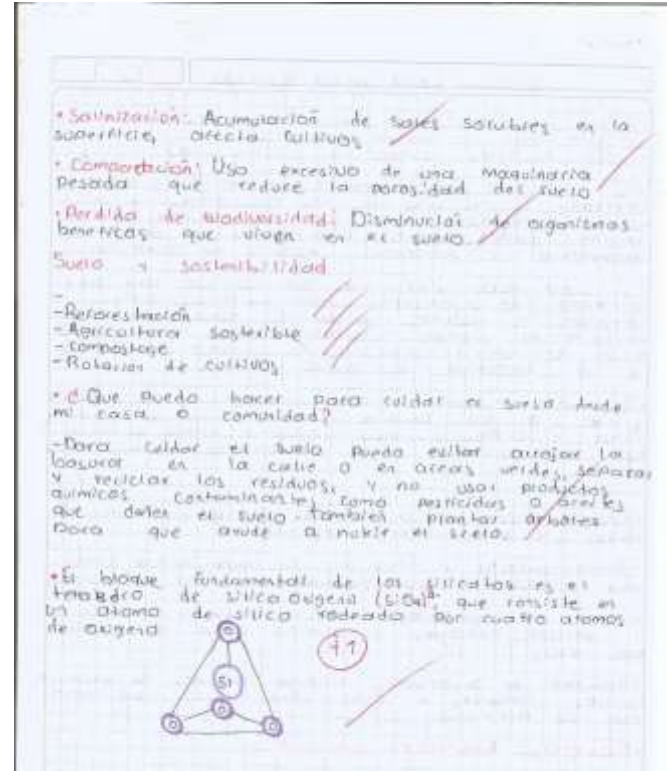 • Salinización: Acumulación de sales solubles en la
superficie, afecta cultivos
• Compactación: Uso excesivo de una maquinaria
pesada que reduce la porosidad del suelo
• Perdida de biodiversidad: Disminución de organismos
beneficos que viven en el suelo.
Suelo y sostenibilidad
-
-Reforestación
-Agricultura sostenible
-compostage
-Rotación de cultivos
• ¿Que puedo hacer para cuidar el suelo desde
mi casa o comunidad?
-Para cuidar el suelo puedo evitar arrojar la
basura en la calle o en areas verdes, separar
y reciclar los residuos, y no usar productos
quimicos contaminantes como pesticidas o aceites
que dañen el suelo también plantar arboles
para que ayude a nutrir el suelo.
• El bloque fundamental de los silicatos es el
tetraedro de silico oxigeno (SiO4)4-, que consiste en
un atomo de silico rodeado por cuatro atomos
de oxigeno
O
Si
O
O
O
+1